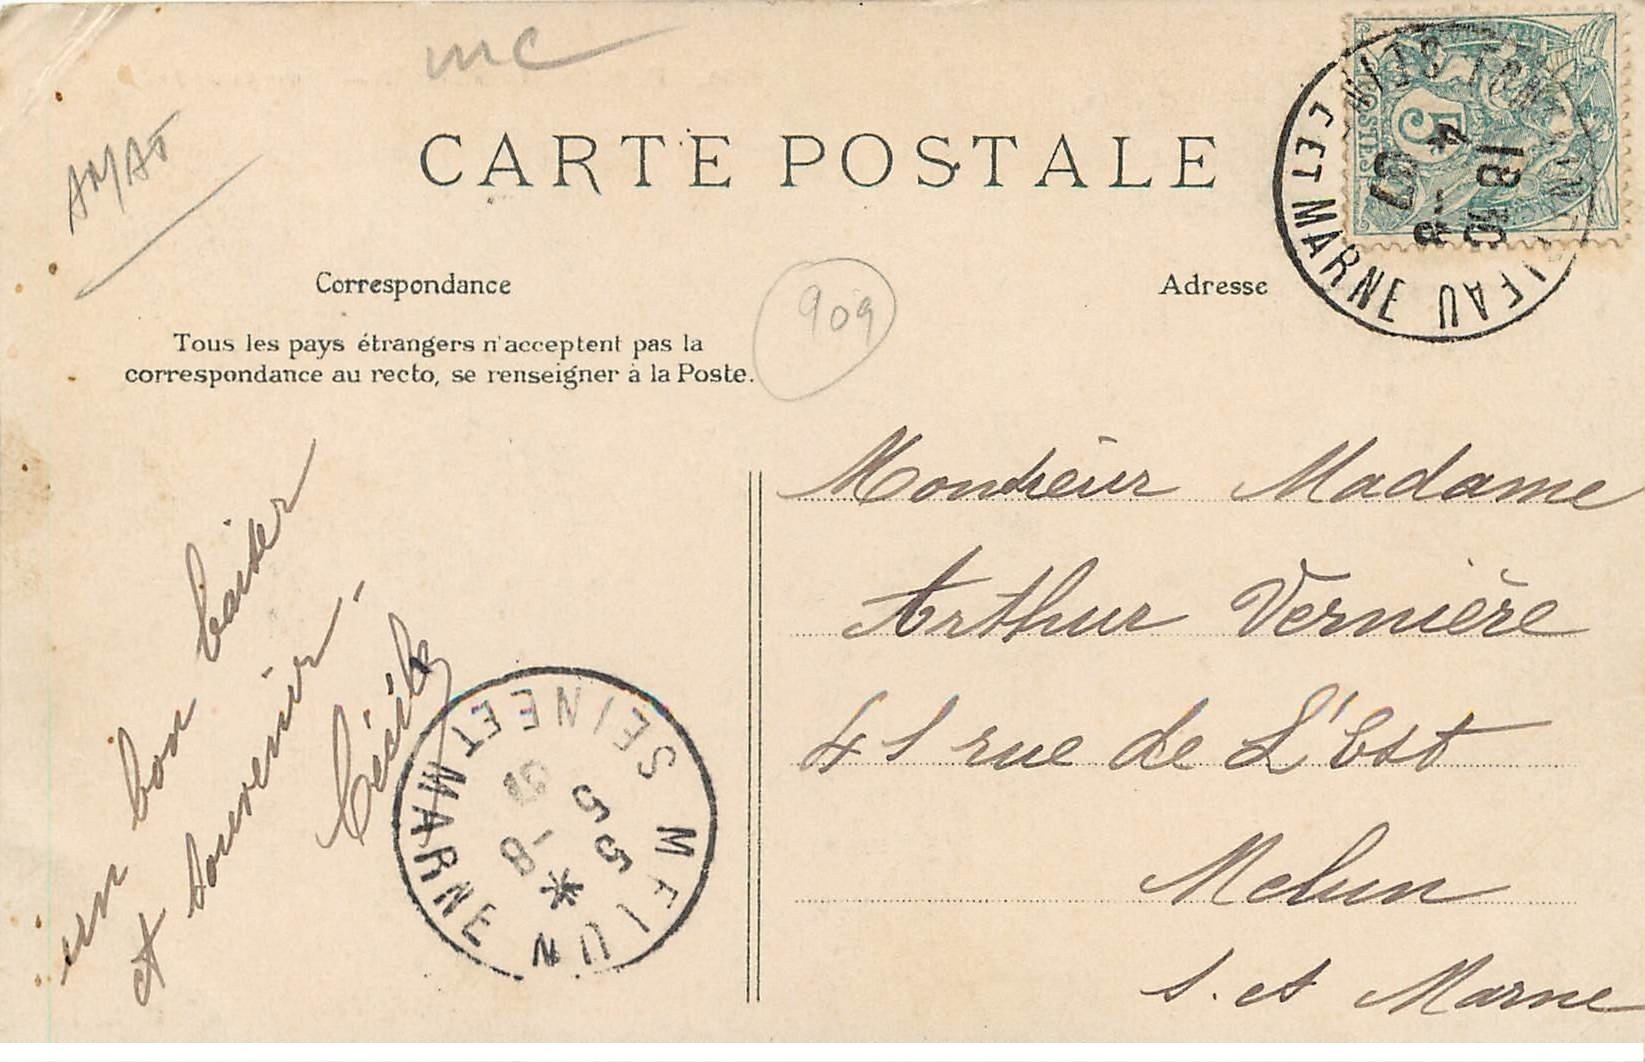 mc
AMAT
CARTE POSTALE
5
18 30
4 -8
07
ET MARNE
Correspondance
Adresse
909
Tous les pays étrangers n'acceptent pas la
correspondance au recto, se renseigner à la Poste.
un bon baiser
et souvenir -
Cécile
MELUN
SEINE ET MARNE
5 5
* -8
Monsieur Madame
Arthur Vernière
41 rue de L'Est
Melun
S. et Marne